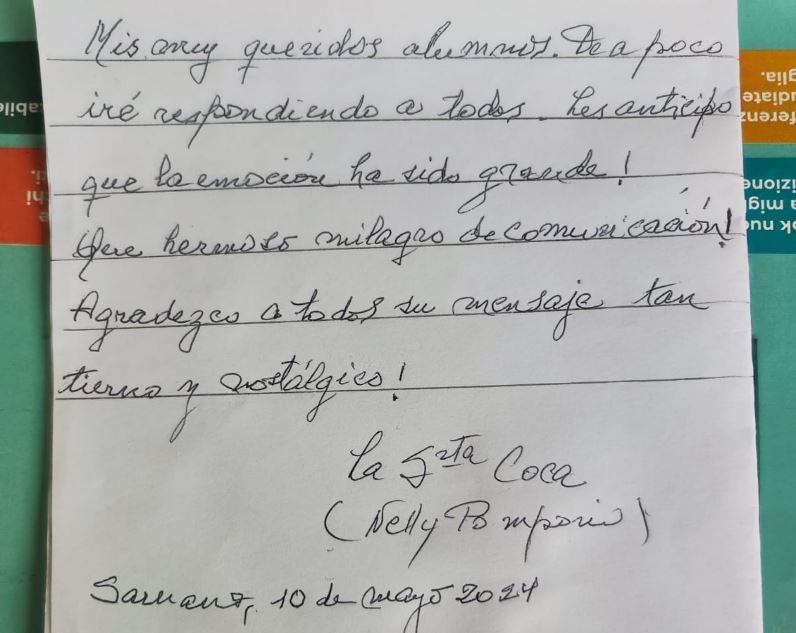 Mis muy queridos alumnos. De a poco
iré respondiendo a todos. Les anticipo
que la emoción ha sido grande!
Que hermoso milagro de comunicación!
Agradezco a todos su mensaje tan
tierno y nostálgico!
La Srta Coca
(Nelly Pomponio)
Sarnano, 10 de mayo 2024